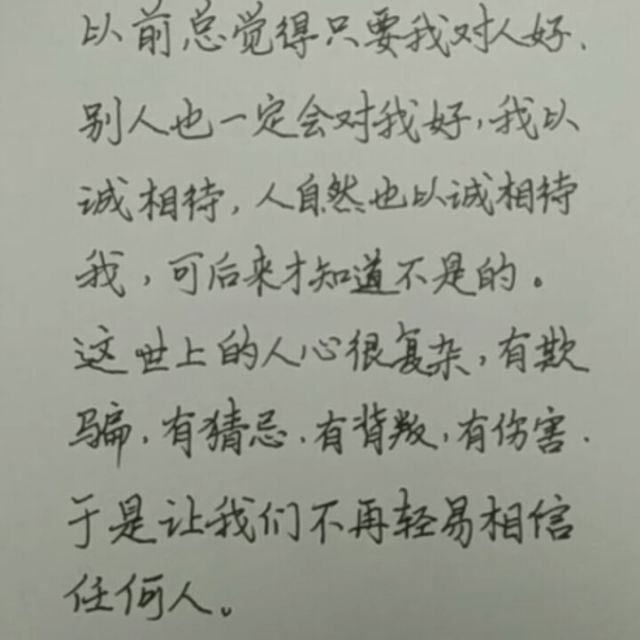 以前总觉得只要我对人好、
别人也一定会对我好,我以
诚相待,人自然也以诚相待
我,可后来才知道不是的。
这世上的人心很复杂,有欺
骗、有猜忌、有背叛,有伤害.
于是让我们不再轻易相信
任何人。